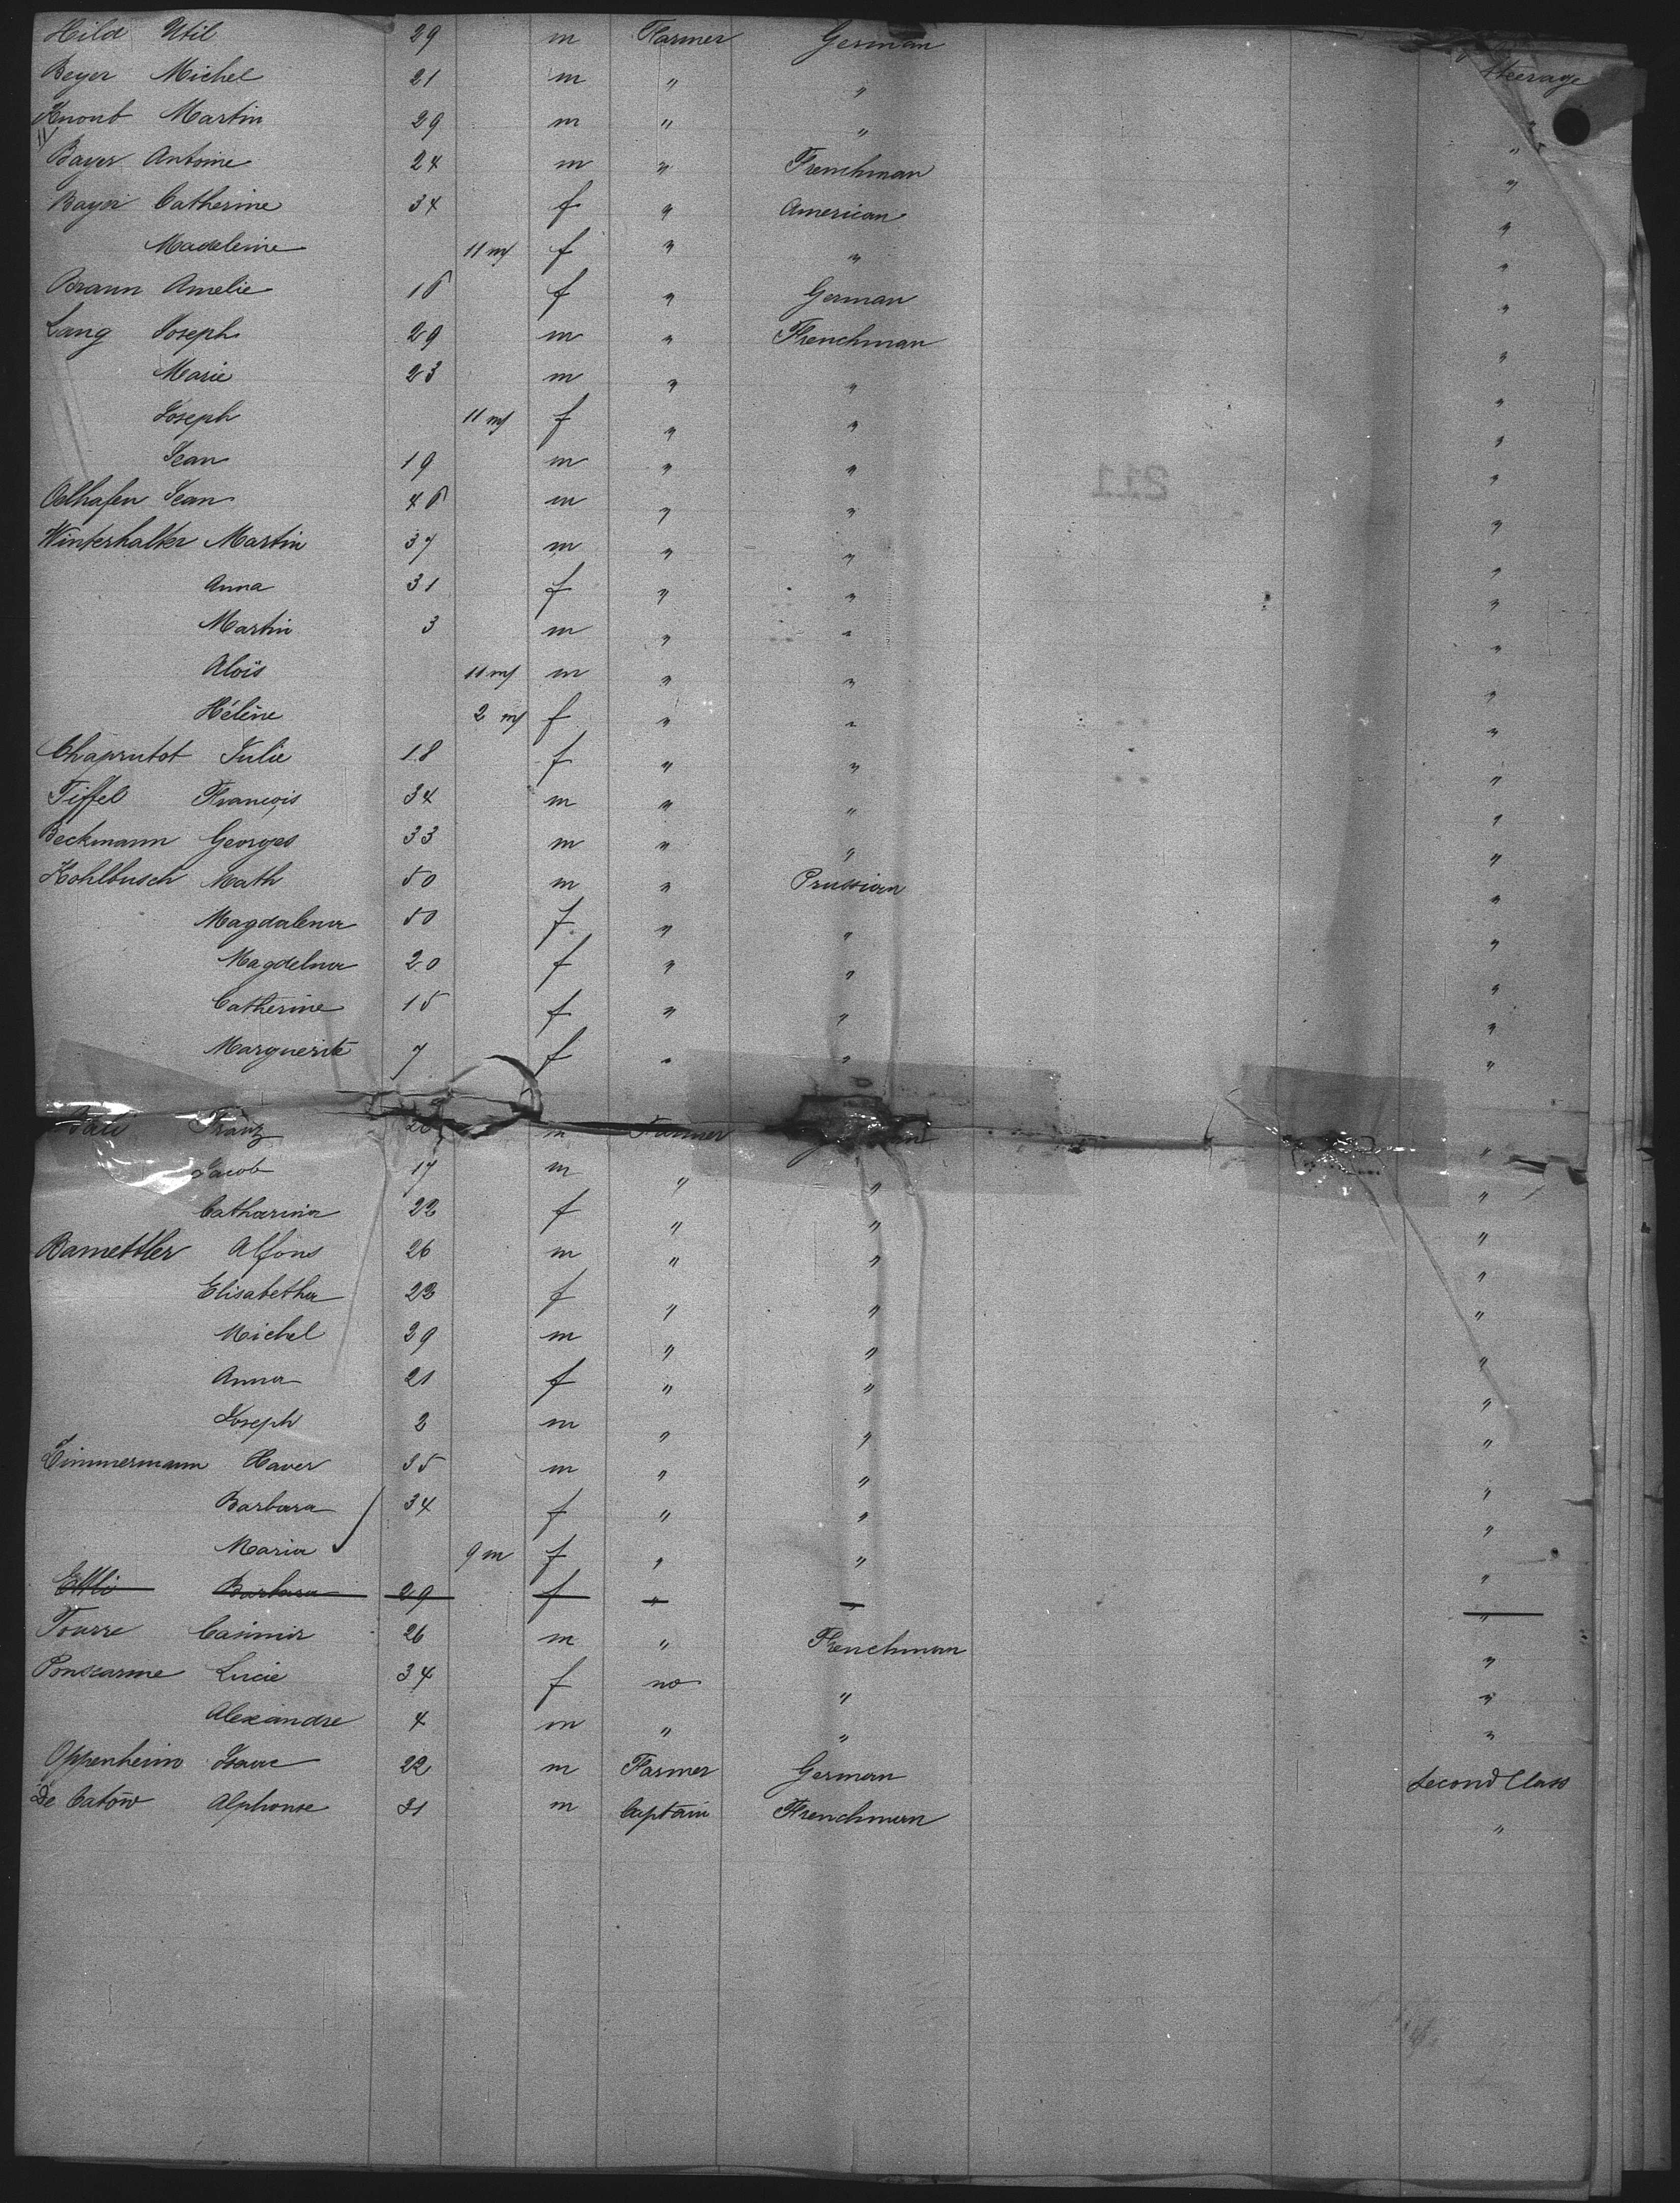 Hild Util 29 m Farmer German
Beyer Michel 21 m " " Steerage
Knont Martin 29 m " " "
Bayer Antoine 24 m " Frenchman "
Bayer Catherine 34 f " American "
Madeleine 11 m/ f " " "
Braun Amelie 18 f " German "
Lang Joseph 29 m " Frenchman "
Marie 23 m " " "
Joseph 11 m/ f " " "
Jean 19 m " " "
Oelhafen Jean 46 m " " "
Winterhalter Martin 37 m " " "
Anna 31 f " " "
Martin 3 m " " "
Aloïs 11 m/ m " " "
Hélène 2 m/ f " " "
Chaprutot Julie 18 f " " "
Tiffel François 34 m " " "
Beckmann Georges 33 m " " "
Kohlbusch Math 50 m " Prussian "
Magdalena 50 f " " "
Magdelna 20 f " " "
Catherine 15 f " " "
Marguerite 7 f " " "
Franz m Farmer "
Jacob 17 m " " "
Catharina 22 f " " "
Bamettler Alfons 26 m " " "
Elisabetha 23 f " " "
Michel 29 m " " "
Anna 21 f " " "
Joseph 2 m " " "
Zimmermann Xaver 35 m " " "
Barbara 34 f " " "
Maria 9 m f " " "
Ettli Barbara 29 f " " "
Tourre Casimir 26 m " Frenchman "
Ponscarme Lucie 34 f no " "
Alexandre 4 m " " "
Oppenheim Isaac 22 m Farmer German Second Class
De Catow Alphonse 31 m Captain Frenchman "
211